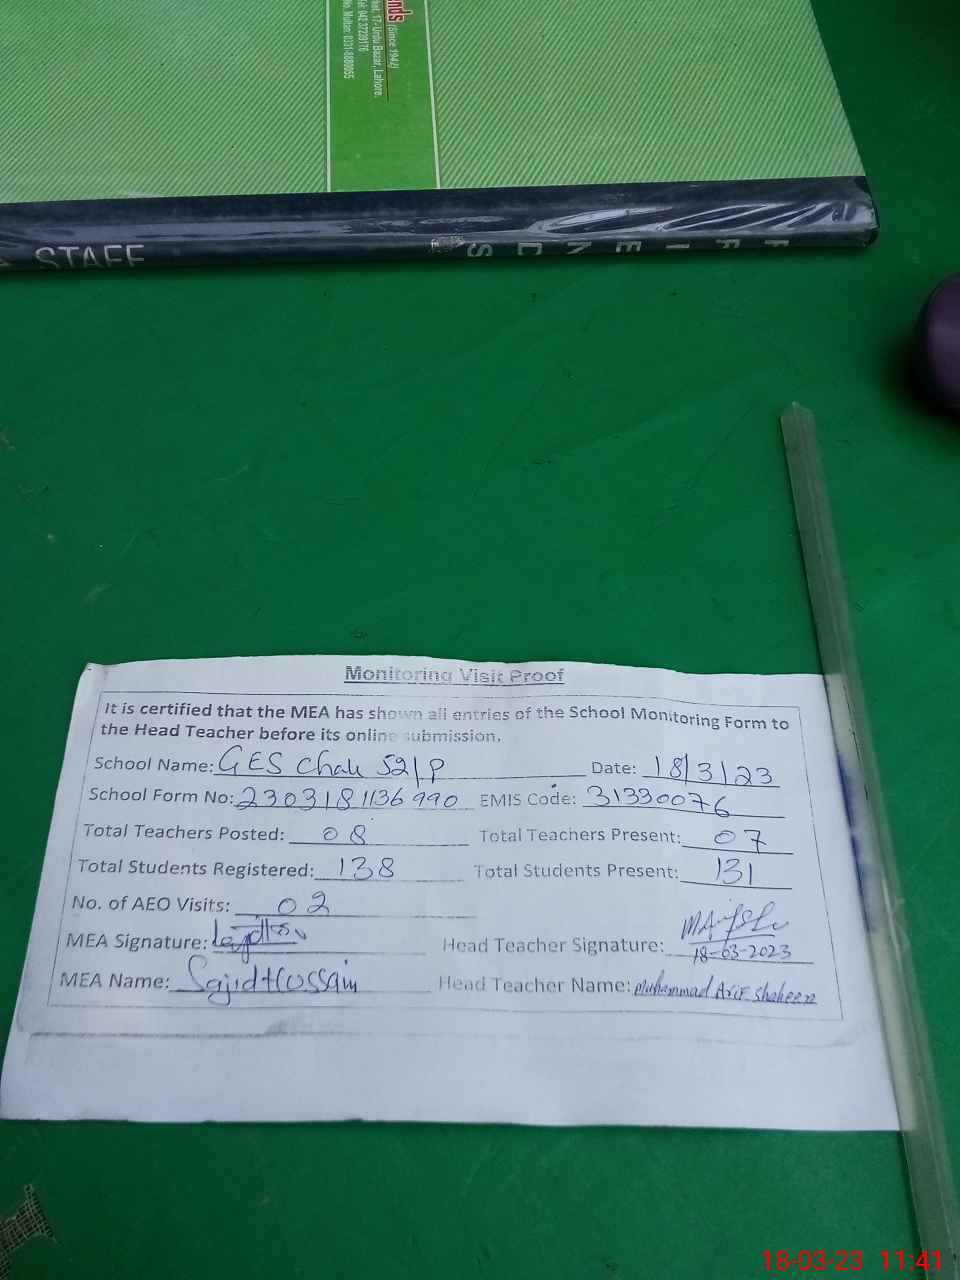 nds (Since 1947)
17- Urdu Bazar, Lahore.
042 37239176
No. Multan: 0331-8888955
STAFF
FRIENDS
Monitoring Visit Proof
It is certified that the MEA has shown all entries of the School Monitoring Form to
the Head Teacher before its online submission.
School Name: GES Chak 52/P Date: 18/3/23
School Form No: 2303181136990 EMIS Code: 31330076
Total Teachers Posted: 08 Total Teachers Present: 07
Total Students Registered: 138 Total Students Present: 131
No. of AEO Visits: 02
MEA Signature: Head Teacher Signature:
18-03-2023
MEA Name: Sajid Hussain Head Teacher Name: Muhammad Arif Shaheen
18-03-23 11:41